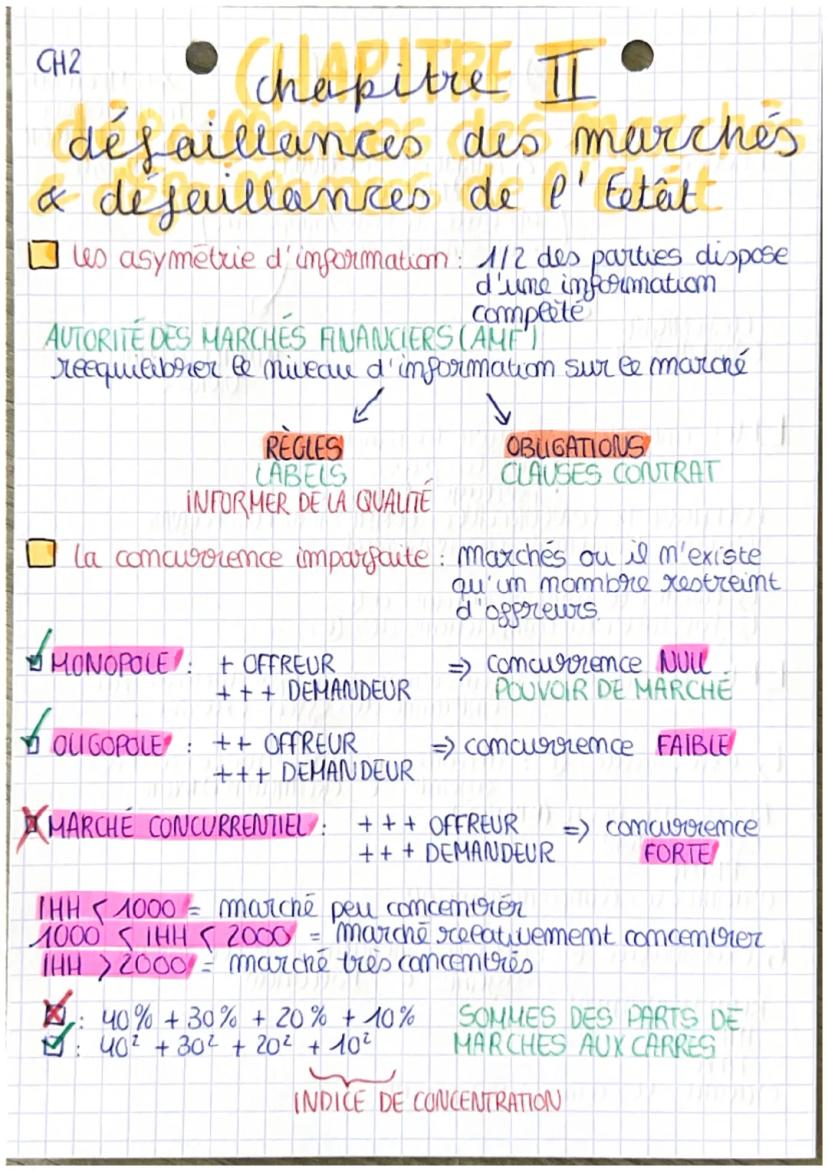 CH2
CHAPITRE II
chapitre II
défaillances des marchés
& défaillances de l'Eetât
les asymétrie d'information : 1/2 des parties dispose
d'une information
complète
AUTORITÉ DES MARCHÉS FINANCIERS (AMF)
reequilibrer le niveau d'information sur le marché
RÈGLES
LABELS
INFORMER DE LA QUALITÉ
OBLIGATIONS
CLAUSES CONTRAT
la concurrence imparfaite : marchés ou il n'existe
qu'un nombre restreint
d'offreurs.
MONOPOLE : + OFFREUR => concurrence NULL.
+++ DEMANDEUR POUVOIR DE MARCHÉ
OLIGOPOLE : ++ OFFREUR => concurrence FAIBLE
+++ DEMANDEUR
MARCHÉ CONCURRENTIEL : +++ OFFREUR => concurrence
+++ DEMANDEUR FORTE
IHH < 1000 = marché peu concentrér
1000 < IHH < 2000 = marché relativement concentrer
IHH > 2000 = marché très concentrés
: 40% + 30% + 20% + 10% SOMMES DES PARTS DE
: 40² + 30² + 20² + 10² MARCHES AUX CARRES
INDICE DE CONCENTRATION